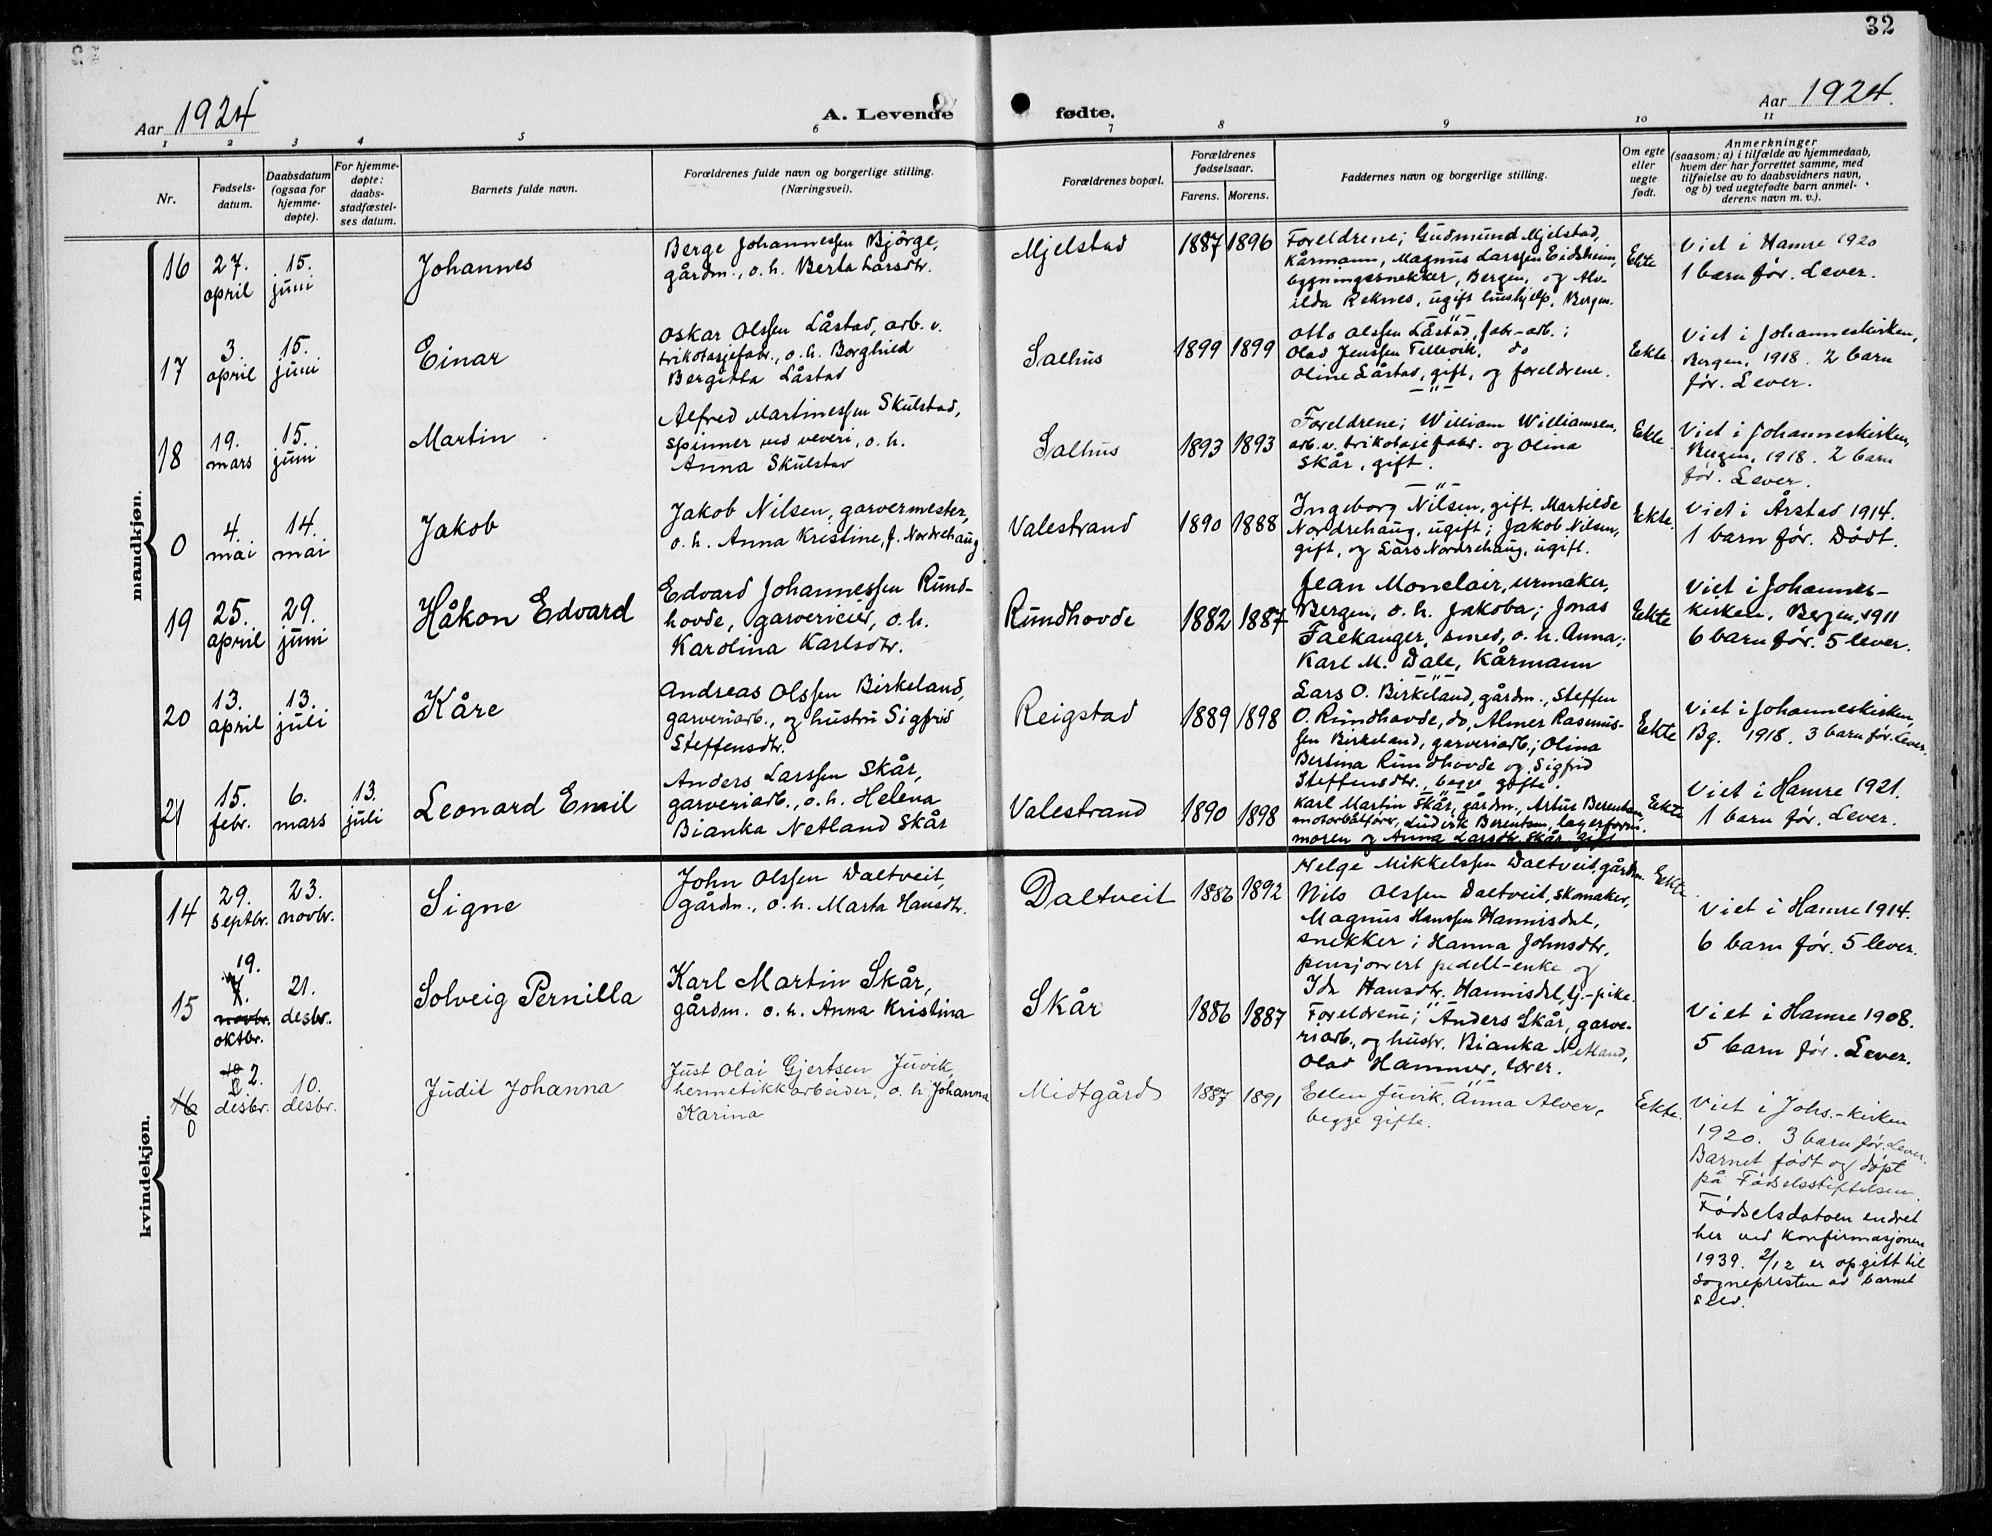 32
Aar 1924
A. Levende fødte.
Aar 1924.
1 2 3 4 5 6 7 8 9 10 11
Nr.
Fødsels-
datum.
Daabsdatum
(ogsaa for
hjemme-
døpte).
For hjemme-
døpte:
daabs-
stadfæstel-
ses datum.
Barnets fulde navn.
Forældrenes fulde navn og borgerlige stilling.
(Næringsvei).
Forældrenes bopæl.
Forældrenes
fødselsaar.
Farens. Morens.
Faddernes navn og borgerlige stilling.
Om egte
eller
uegte
født.
Anmerkninger
(saasom: a) i tilfælde av hjemmedaab,
hvem der har forrettet samme, med
tilføielse av to daabsvidners navn,
og b) ved uegtefødte barn anmel-
derens navn m. v.).
mandkjøn.
16
27.
april
15.
juni
Johannes
Berge Johannessen Bjørge,
gårdm., o. h. Berta Larsdtr.
Mjelstad
1887 1896
Foreldrene; Gudmund Mjelstad,
kårmann, Magnus Larssen Eidsheim,
bygningssnekker, Bergen, og Alv-
ilda Reknes, ugift hushjelp, Bergen.
Ekte
Viet i Hamre 1920
1 barn før. Lever.
17
3.
april
15.
juni
Einar
Oskar Olssen Låstad, arb. v.
trikotasjefabr., o. h. Borghild
Bergitta Låstad
Salhus
1899 1899
Otto Olssen Låstad, fabr-arb.;
Olav Jenssen Tellevik, do
Oline Låstad, gift, og foreldrene.
Ekte
Viet i Johanneskirken,
Bergen, 1918. 2 barn
før. Lever.
18
19.
mars
15.
juni
Martin
Alfred Martinessen Skulstad,
spinner ved veveri, o. h.
Anna Skulstad
Salhus
1893 1893
Foreldrene; William Williamsen,
arb. v. trikotasjefabr. og Olina
Skår, gift.
Ekte
Viet i Johanneskirken,
Bergen, 1918. 2 barn
før. Lever.
0
4.
mai
14.
mai
Jakob
Jakob Nilsen, garvermester,
o. h. Anna Kristine, f. Nordrehaug
Valestrand
1890 1888
Ingeborg Nilsen, gift, Martilde
Nordrehaug, ugift; Jakob Nilsen,
gift, og Lars Nordrehaug, ugift.
Ekte
Viet i Årstad 1914.
1 barn før. Dødt.
19
25.
april
29.
juni
Håkon Edvard
Edvard Johannessen Rund-
hovde, garverieier, o. h.
Karolina Karlsdtr.
Rundhovde
1882 1887
Jean Monclair, urmaker,
Bergen, o. h. Jakoba; Jonas
Falkanger, smed, o. h. Anna;
Karl M. Dale, kårmann
Ekte
Viet i Johannes-
kirken, Bergen, 1911
6 barn før. 5 lever.
20
13.
april
13.
juli
Kåre
Andreas Olssen Birkeland,
garveriarb., og hustru Sigfrid
Steffensdtr.
Reigstad
1889 1898
Lars O. Birkeland, gårdm., Steffen
O. Rundhovde, do, Almer Rasmus-
sen Birkeland, garveriarb.; Olina
Bertina Rundhovde og Sigfrid
Steffensdtr., begge gifte.
Ekte
Viet i Johanneskirken,
Bg. 1918. 3 barn før. Lever.
21
15.
febr.
6.
mars
13.
juli
Leonard Emil
Anders Larssen Skår,
garveriarb., o. h. Helena
Bianka Netland Skår
Valestrand
1890 1898
Karl Martin Skår, gårdm., Artur Berentsen,
motorbåtfører, Ludvik Berentsen, lagerform.
moren og Anna Larsdtr. Skår gift
Ekte
Viet i Hamre 1921.
1 barn før. Lever.
kvindekjøn.
14
29.
septbr.
23.
novbr.
Signe
John Olssen Daltveit,
gårdm., o. h. Marta Hansdtr.
Daltveit
1886 1892
Helge Mikkelssen Daltveit, gårdm.
Nils Olssen Daltveit, skomaker,
Magnus Hanssen Hannisdal,
snekker; Hanna Johnsdtr,
pensjonert pedell-enke og
Ida Hansdtr. Hannisdal, tj.-pike.
Ekte
Viet i Hamre 1914.
6 barn før. 5 lever.
15
19.
7.
novbr.
oktbr.
21.
desbr.
Solveig Pernilla
Karl Martin Skår,
gårdm. o. h. Anna Kristina
Skår
1886 1887
Foreldrene; Anders Skår, garve-
riarb., og hustr. Bianka Netland,
Olav Hammer, lærer.
Viet i Hamre 1908.
5 barn før. Lever.
16
0
10
2.
desbr.
10.
desbr.
Judit Johanna
Just Olai Gjertsen Juvik,
hermetikkarbeider, o. h. Johanna
Karina
Midtgård
1887 1891
Ellen Juvik, Anna Alver,
begge gifte.
Ekte.
Viet i Johs.-kirken
1920. 3 barn før. Lever.
Barnet født og døpt
på Fødselsstiftelsen.
Fødselsdatoen endret
her ved konfirmasjonen
1939. 2/12 er opgitt til
sognepresten av barnet
selv.